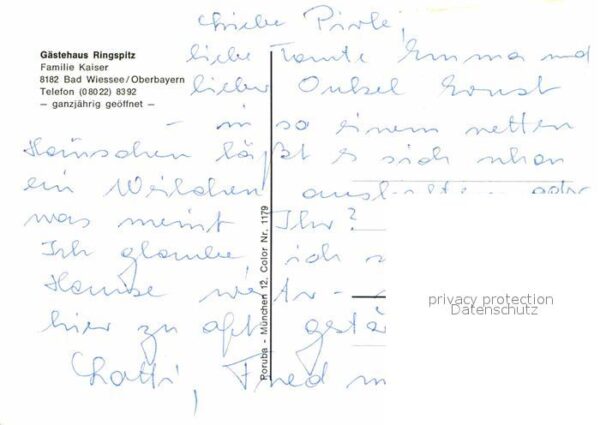 Liebe Pirle,
Gästehaus Ringspitz
Familie Kaiser
8182 Bad Wiessee/Oberbayern
Telefon (08022) 8392
— ganzjährig geöffnet —
liebe Tante Emma und
lieber Onkel Ernst
— in so einem netten
Häuschen läßt es sich schon
ein Weilchen aushalten oder
was meint Ihr?
Ich glaube ich
Hause
hier zu oft
Fred
Poruba - München 12, Color Nr. 1179
privacy protection
Datenschutz